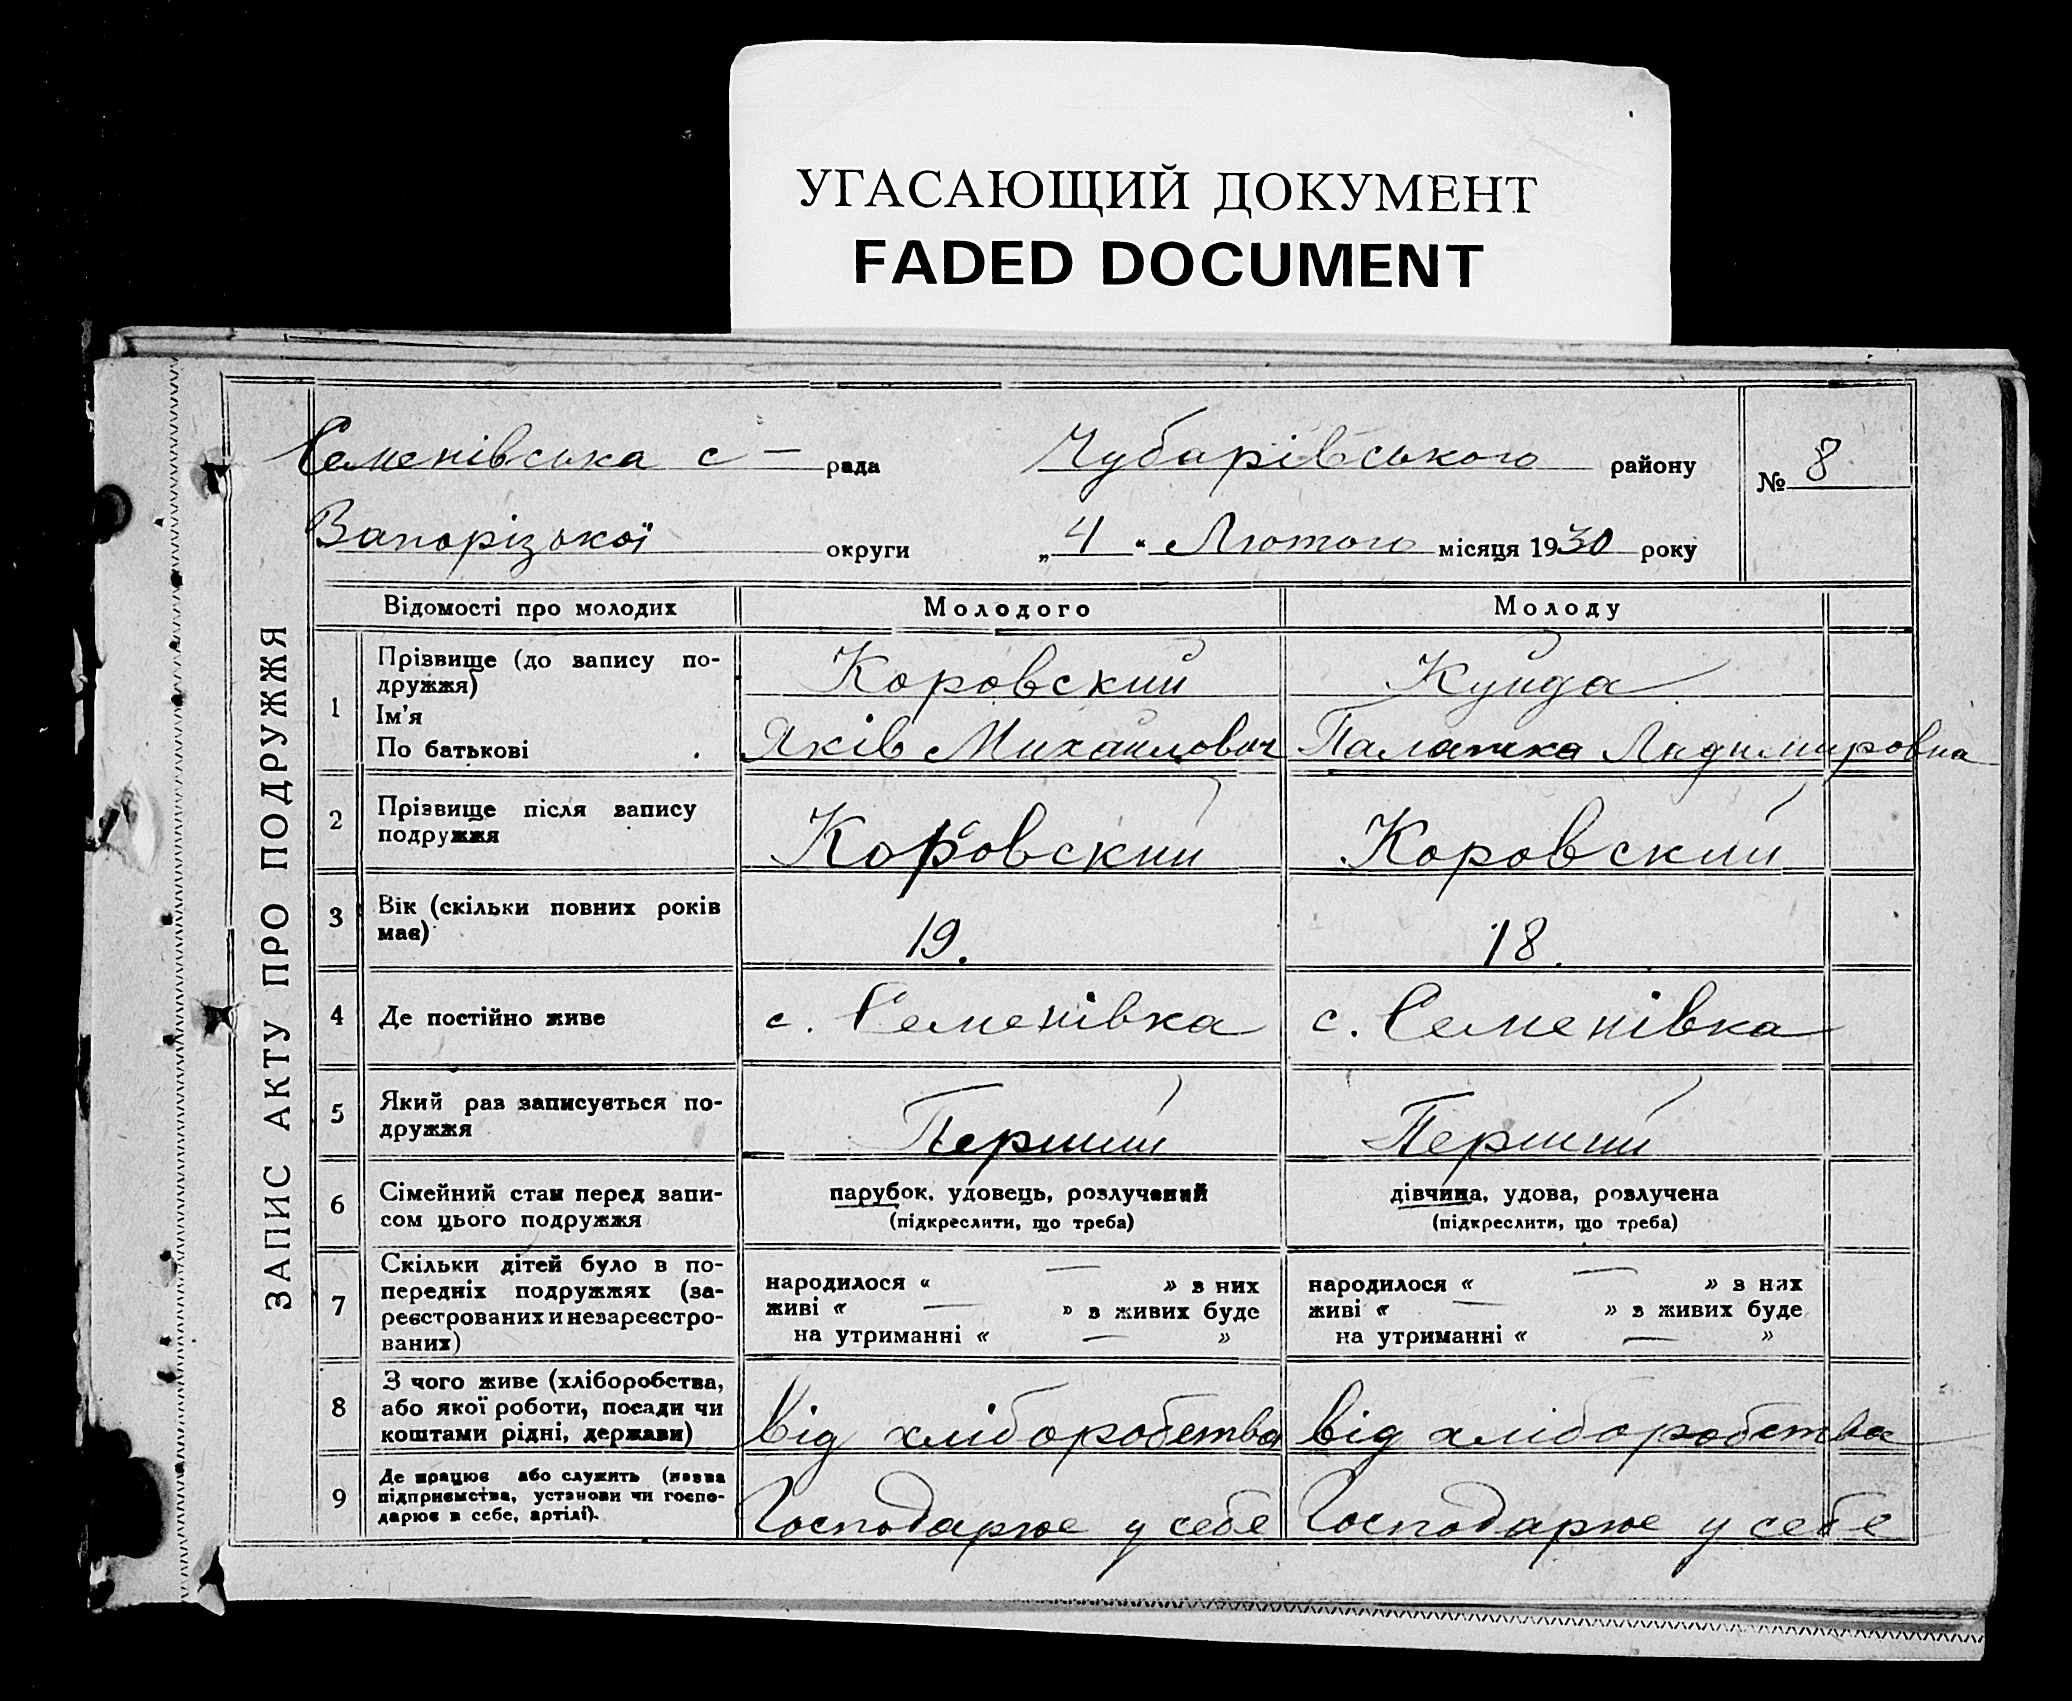 УГАСАЮЩИЙ ДОКУМЕНТ
FADED DOCUMENT
ЗАПИС АКТУ ПРО ПОДРУЖЖЯ
Семенівська с – рада Чубарівського району № 8
Запорізької округи „4“ Лютого місяця 1930 року
Відомості про молодих Молодого Молоду
1 Прізвище (до запису по-
дружжя) Коровский Кунда
Ім'я
По батькові Яків Михайлович Палажка Ладимировна
2 Прізвище після запису
подружжя Коровский Коровский
3 Вік (скільки повних років
має) 19. 18.
4 Де постійно живе с. Семенівка с. Семенівка
5 Який раз записується по-
дружжя Перший Перший
6 Сімейний стан перед запи-
сом цього подружжя
парубок, удовець, розлучений
(підкреслити, що треба)
дівчина, удова, розлучена
(підкреслити, що треба)
7 Скільки дітей було в по-
передніх подружжях (за-
реєстрованих и незареєстро-
ваних)
народилося « — » з них
живі « — » з живих буде
на утриманні « — »
народилося « — » з них
живі « — » з живих буде
на утриманні « — »
8 З чого живе (хліборобства,
або якої роботи, посади чи
коштами рідні, держави) від хліборобства від хліборобства
9 Де працює або служить (назва
підприємства, установи чи госпо-
дарює в себе, артілі). Господарює у себе Господарює у себе